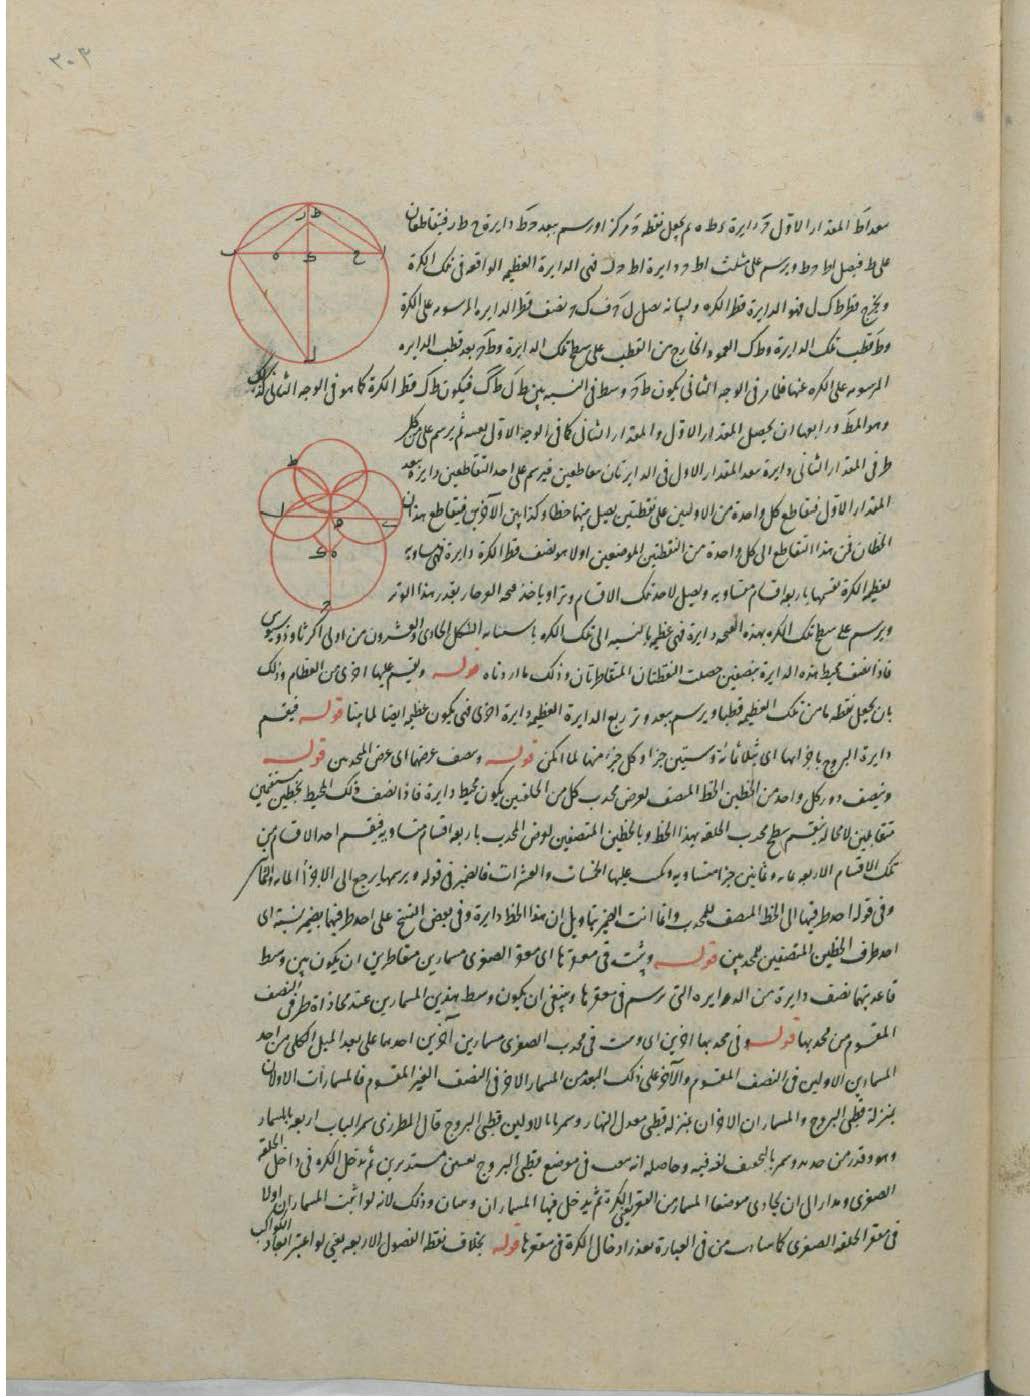 ٣٠٣
بعد اط المقدار الاول و دايرة ء ط ه ثم يجعل نقطة مركزا ورسم ببعد دايرة ح ط ر فيتقاطعان
على ط فيصل اط وط ويرسم على مثلث اط دايرة اط فهى الدايرة العظيمه الواقعه فى تلك الكرة
ويخرج قطر ط ك ل فهو الدايرة قطر الكره وليبانه يصل نصف قطر الدايره المرسومه على الكرة
وط قطب تلك الدايرة وط ك العمود الخارج من القطب على سطح تلك الدايرة بعد قطب الدايره
المرسومه على الكره عنها فلما مر فى الوجه الثانى يكون وسط فى النسبه بين فيكون قطر الكرة كما هو فى الوجه الثانى
وهو المط ورابعها ان يحصل المقدار الاول والمقدار الثانى كما فى الوجه الاول بعينه ثم يرسم على
طرفى المقدار الثانى دايرة ببعد المقدار الاول فى الدايرتان متقاطعين فيرسم على احد التقاطعين دايرة ببعد
المقدار الاول فيقاطع كل واحدة من الاوليين على نقطتين يصل بينهما خطا وكذا بين الآخرين فيقاطع هذان
الخطان فمن هذا التقاطع الى كل واحدة من النقطتين الموضعين اولا هو نصف قطر الكرة دايرة فهى مساويه
لعظيمة الكرة نقسمها باربعه اقسام متساويه ويصل لاحد تلك الاقسام وترا وياخذ فتحه الفرجار بقدر هذا الوتر
ويرسم على سطح تلك الكره بهذه الفتحه دايرة فهى عظيمه بالنسبه الى تلك الكره باستبانه الشكل الحادى والعشرون من اولى اكر ثاوذوسيوس
فاذا نصف محيط هذه الدايرة بنصفين حصلت النقطتان المتقاطرتان وذلك ما اردناه قوله ويقسم عليها اخرى من العظام وذلك
بان يجعل نقطه ما من تلك العظيمه قطبا ويرسم ببعد وتر ربع الدايرة العظيمه دايرة اخرى فهى يكون عظيمه ايضا لما بينا قوله فيقسم
دايرة البروج باجزائها اى بثلاثمائة وستين جزءا وكل جزء منها لما امكن قوله ونصف عرضها اى عرض المحدبين قوله
وينصف دور كل واحد من الخطين الخط المنصف لعرض محدب كل من الحلقتين يكون محيط دايرة فاذا نصف ذلك المحيط بخطين مستقيمين
متقابلين لا محاله ينقسم سطح محدب الحلقه بهذا الخط وبالخطين المنصفين لعرض المحدب باربعه اقسام متساويه فيقسم احد الاقسام من
تلك الاقسام الاربعه مائه وثمانين جزءا متساويه ويكتب عليها الخمسات والعشرات فالضمير فى قوله ويرسمها يرجع الى الاجزاء
وفى قوله احد طرفيها الى الخط المنصف للمحدب وانما انث الضمير بتاويل ان هذا الخط دايرة وفى بعض النسخ على احد طرفيها بضمير تثنيه اى
احد طرف الخطين المنصفين للمحدبين قوله ويثبت فى مقعرها اى مقعر الصغرى مسمارين متقاطرين ان يكون بين وسط
قاعدتيهما نصف دايرة من الدوايره التى يرسم فى مقعرها وينبغى ان يكون وسط هذين المسمارين عند محاذاة طرفى النصف
المقسوم من محدبها قوله وفى محدبها اخرين اى ويثبت فى محدب الصغرى مسمارين آخرين احدهما على بعد الميل الكلى من احد
المسمارين الاولين فى النصف المقسوم والآخر على ذلك البعد من المسمار الاخر فى النصف الغير المقسوم فالمسماران الاولان
بمنزلة قطبى البروج والمسماران الاخران بمنزله قطبى معدل النهار وسميا بالاولين قطبى البروج قال المطرزى سمر الباب اربعه بالمسمار
وهو وتد من حديد وسمر بالتخفيف لغه فيه وحاصله انه يثقب فى موضع قطبى البروج ثقبين مستديرين ثم يدخل الكره فى داخل الحلقه
الصغرى ويدار الى ان يحاذى موضعا المسمارين الثقبتين فى الكرة ثم يدخل فيها المسماران وذلك لانه لو اثبت المسماران اولا
فى مقعر الحلقه الصغرى كما يتبادر من فى العبارة تعذر ادخال الكرة فى مقعرها قوله بخلاف نقط الفصول الاربعه يعنى لو اعتبر ابعاد الكواكب